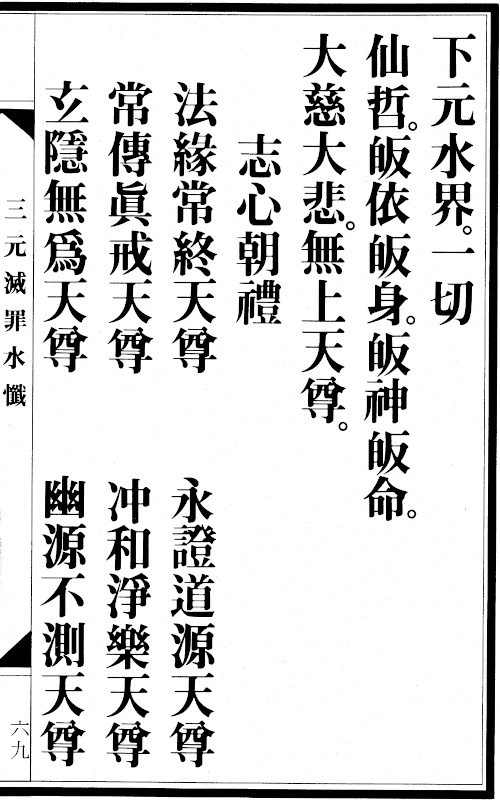 下元水界。一切
仙哲。皈依皈身。皈神皈命。
大慈大悲。無上天尊。
志心朝禮
法緣常終天尊　永證道源天尊
常傳眞戒天尊　冲和淨樂天尊
玄隱無爲天尊　幽源不測天尊
三元滅罪水懺
六九